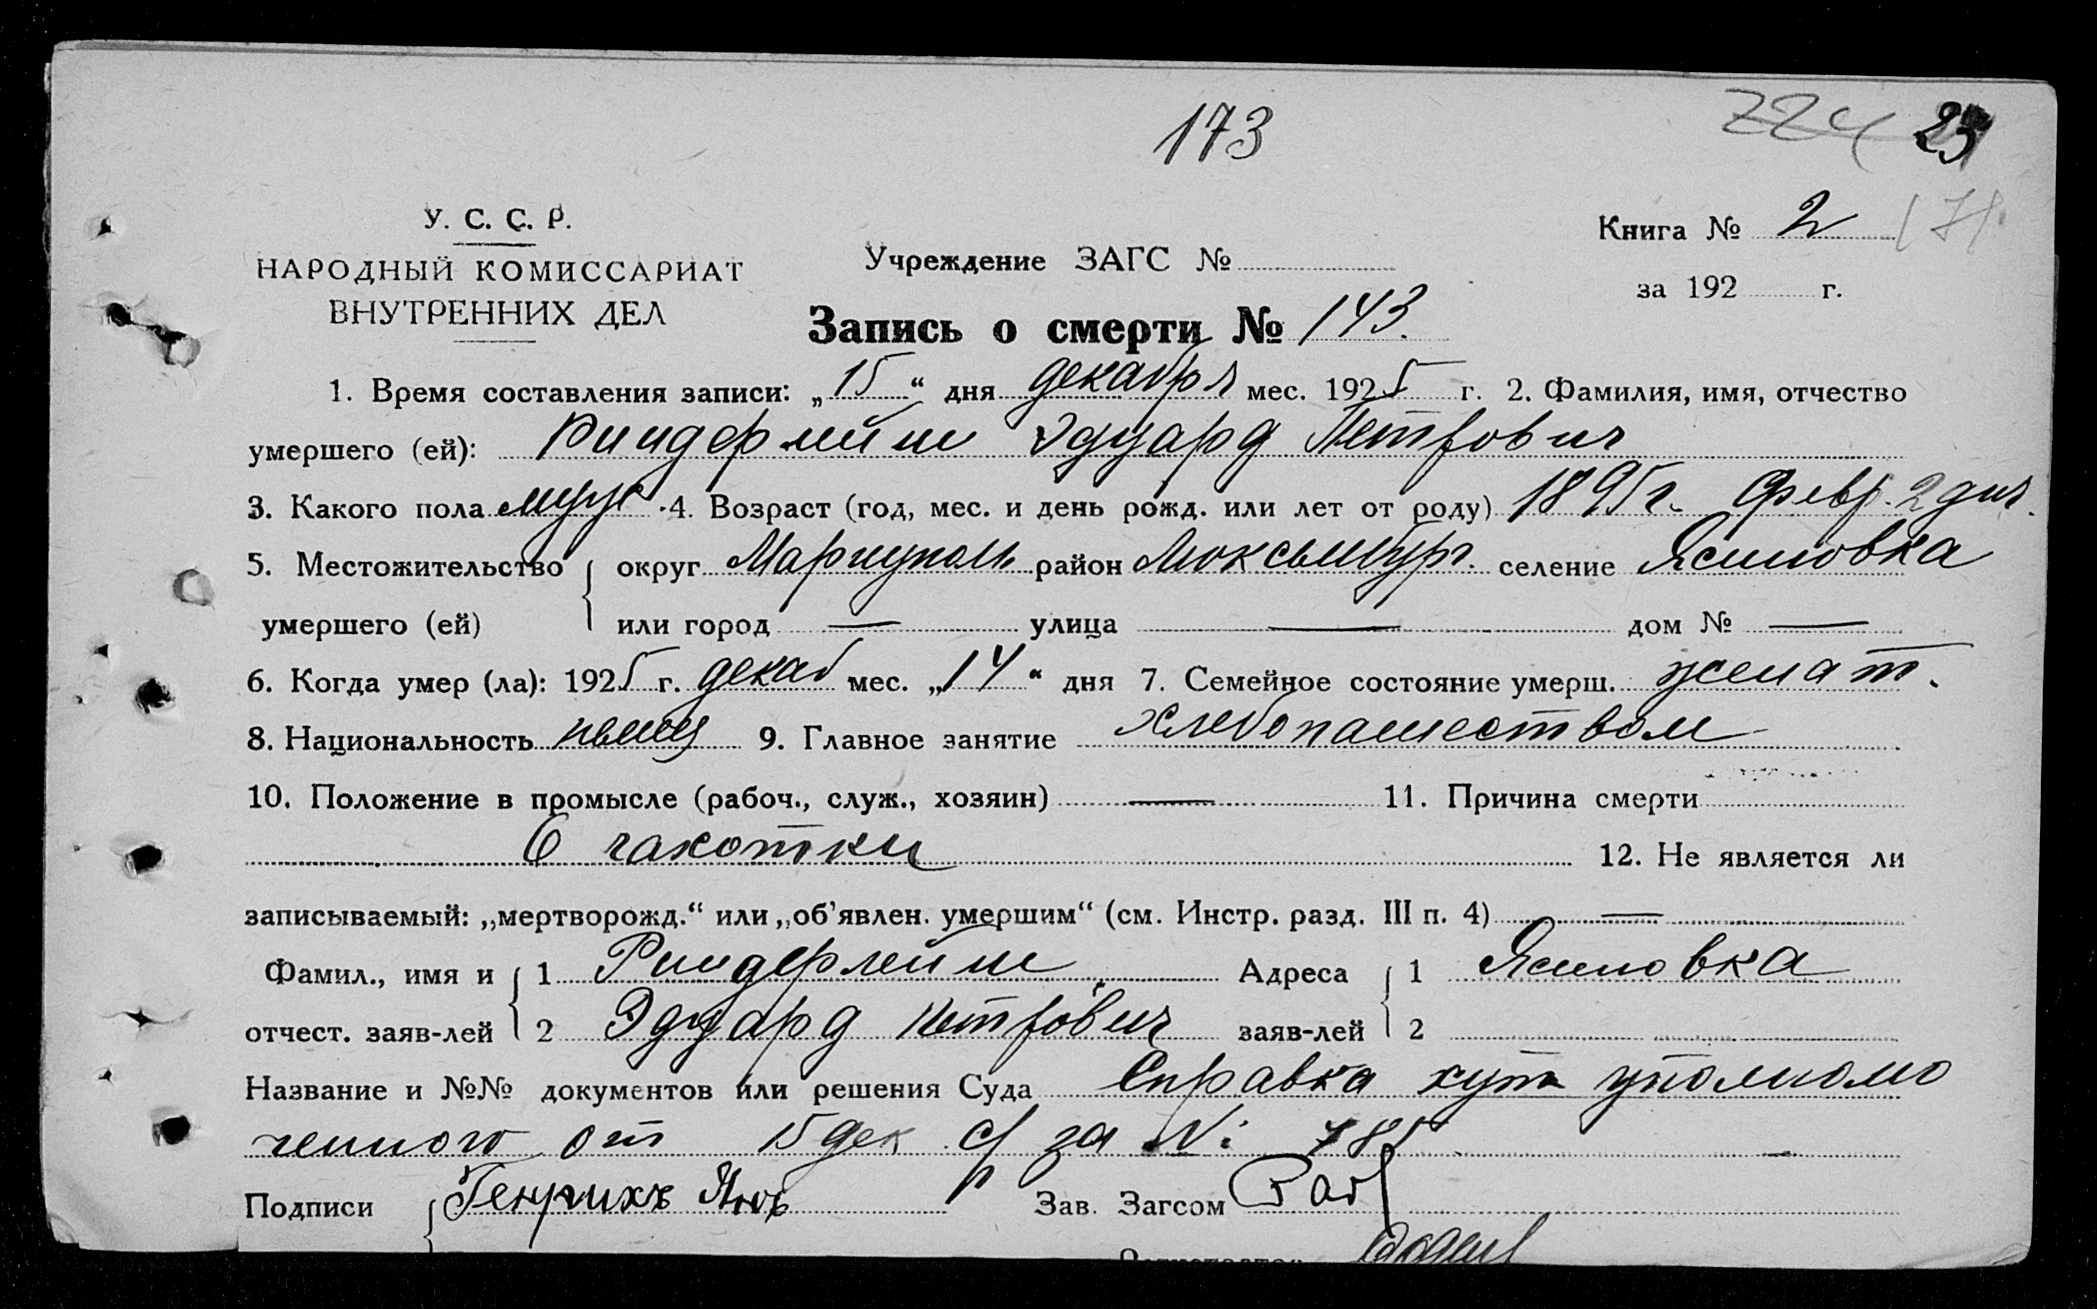 173
224 23
171
У. С. С. Р.
НАРОДНЫЙ КОМИССАРИАТ
ВНУТРЕННИХ ДЕЛ
Учреждение ЗАГС №
Книга № 2
за 192 г.
Запись о смерти № 143.
1. Время составления записи: „15“ дня декабря мес. 1925 г. 2. Фамилия, имя, отчество
умершего (ей): Риндерлейш Эдуард Петрович
3. Какого пола муж 4. Возраст (год, мес. и день рожд. или лет от роду) 1895 г. Февр. 2 дня.
5. Местожительство округ Мариуполь район Люксембург. селение Ясиновка
умершего (ей) или город — улица — дом № —
6. Когда умер (ла): 1925 г. декаб мес. „14“ дня 7. Семейное состояние умерш. женат.
8. Национальность немец 9. Главное занятие хлебопашеством
10. Положение в промысле (рабоч., служ., хозяин) — 11. Причина смерти
О чахотки 12. Не является ли
записываемый: „мертворожд.“ или „об'явлен. умершим“ (см. Инстр. разд. III п. 4) —
Фамил., имя и 1 Риндерлейш Адреса 1 Ясиновка
отчест. заяв-лей 2 Эдуард Петрович заяв-лей 2
Название и №№ документов или решения Суда Справка хут уполномо
ченного от 15 дек с/г за №: 785
Подписи Генрихъ Янъ Зав. Загсом